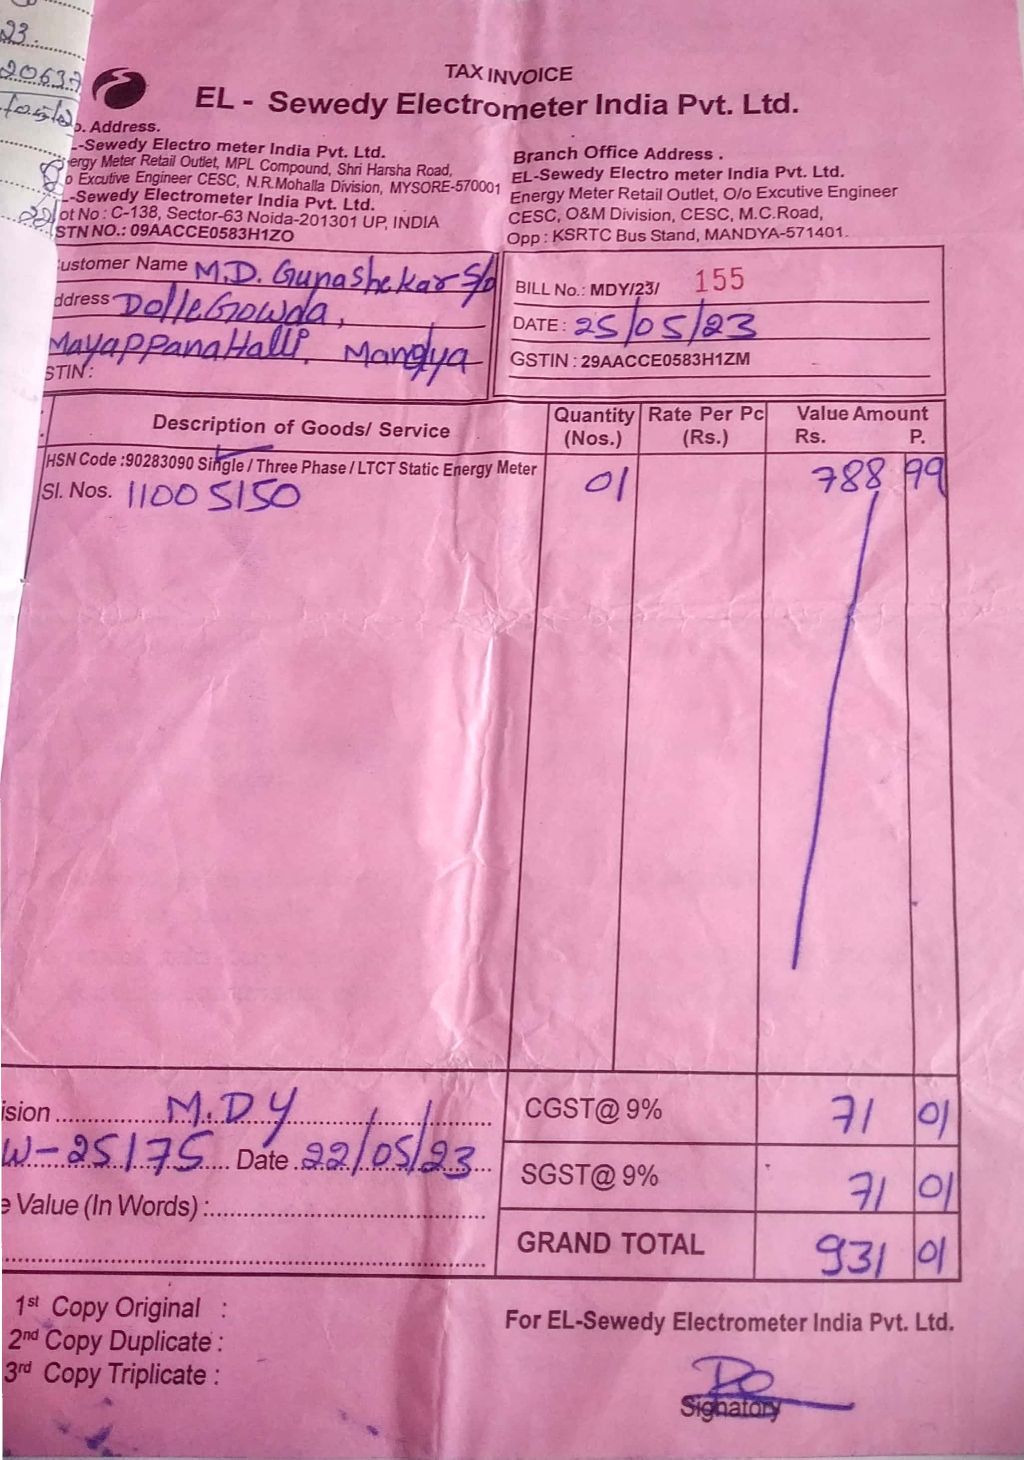 23.
TAX INVOICE
EL - Sewedy Electrometer India Pvt. Ltd.
. Address.
-Sewedy Electro meter India Pvt. Ltd.
ergy Meter Retail Outlet, MPL Compound, Shri Harsha Road,
o Excutive Engineer CESC, N.R.Mohalla Division, MYSORE-570001
-Sewedy Electrometer India Pvt. Ltd.
ot No : C-138, Sector-63 Noida-201301 UP, INDIA
STN NO.: 09AACCE0583H1ZO
Branch Office Address .
EL-Sewedy Electro meter India Pvt. Ltd.
Energy Meter Retail Outlet, O/o Excutive Engineer
CESC, O&M Division, CESC, M.C.Road,
Opp : KSRTC Bus Stand, MANDYA-571401.
ustomer Name M.D. Gunashekar S/o
ddress DolleGowda,
MayappanaHalli, Mandya
STIN:
BILL No.: MDY/23/ 155
DATE : 25/05/23
GSTIN : 29AACCE0583H1ZM
Description of Goods/ Service Quantity (Nos.) Rate Per Pc (Rs.) Value Amount Rs. P.
HSN Code :90283090 Single / Three Phase / LTCT Static Energy Meter 01 788 99
Sl. Nos. 11005150
ision M.DY
W-25175 Date 22/05/23
e Value (In Words) :
CGST@ 9% 71 01
SGST@ 9% 71 01
GRAND TOTAL 931 01
1st Copy Original :
2nd Copy Duplicate :
3rd Copy Triplicate :
For EL-Sewedy Electrometer India Pvt. Ltd.
Signatory